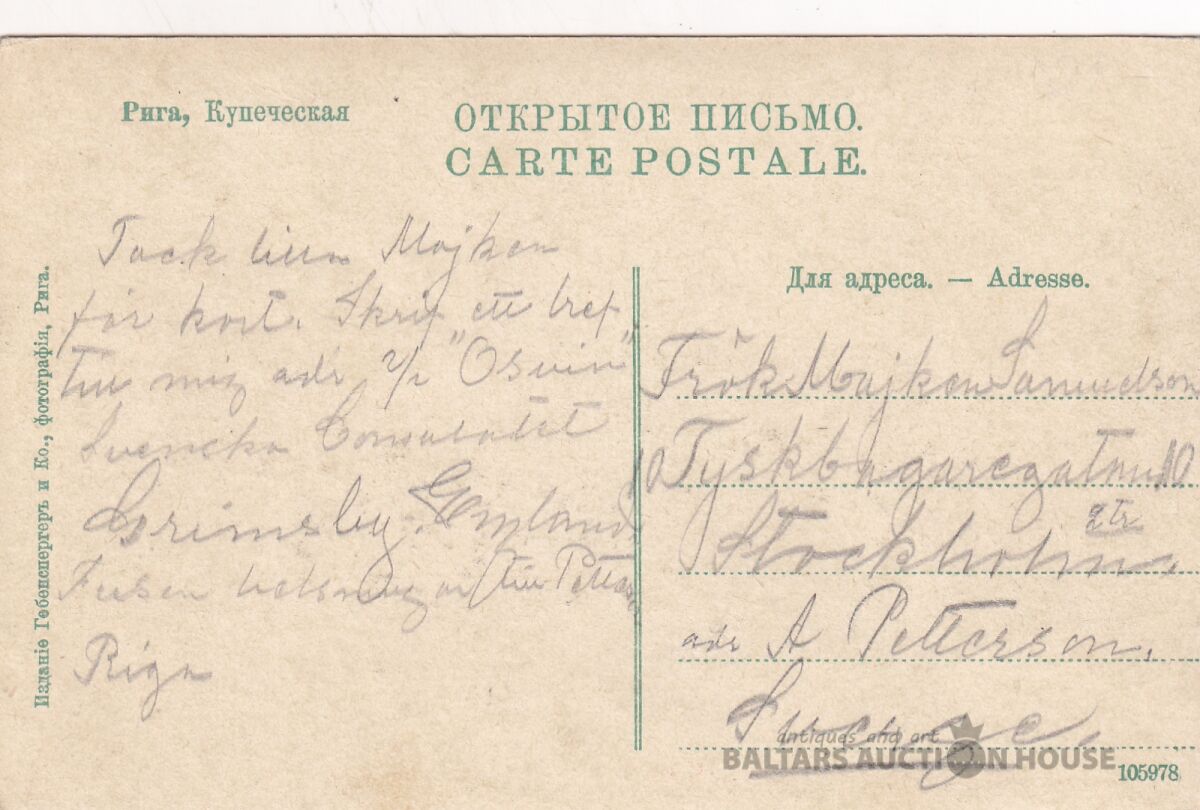 Рига, Купеческая
ОТКРЫТОЕ ПИСЬМО.
CARTE POSTALE.
Изданіе Гебенспергеръ и Ко., фотографія, Рига.
Tack lilla Majken
för kort. Skrif ett bref
till mig adr "Osvin"
Svenska Consulatet
Grimsby. England
helsningar till
Riga
Для адреса. — Adresse.
Frök Majken Samuelson
10 Tyskbagaregatan 10
2 tr
Stockholm.
adr A Petterson.
Sverge.
antiques and art
BALTARS AUCTION HOUSE
105978